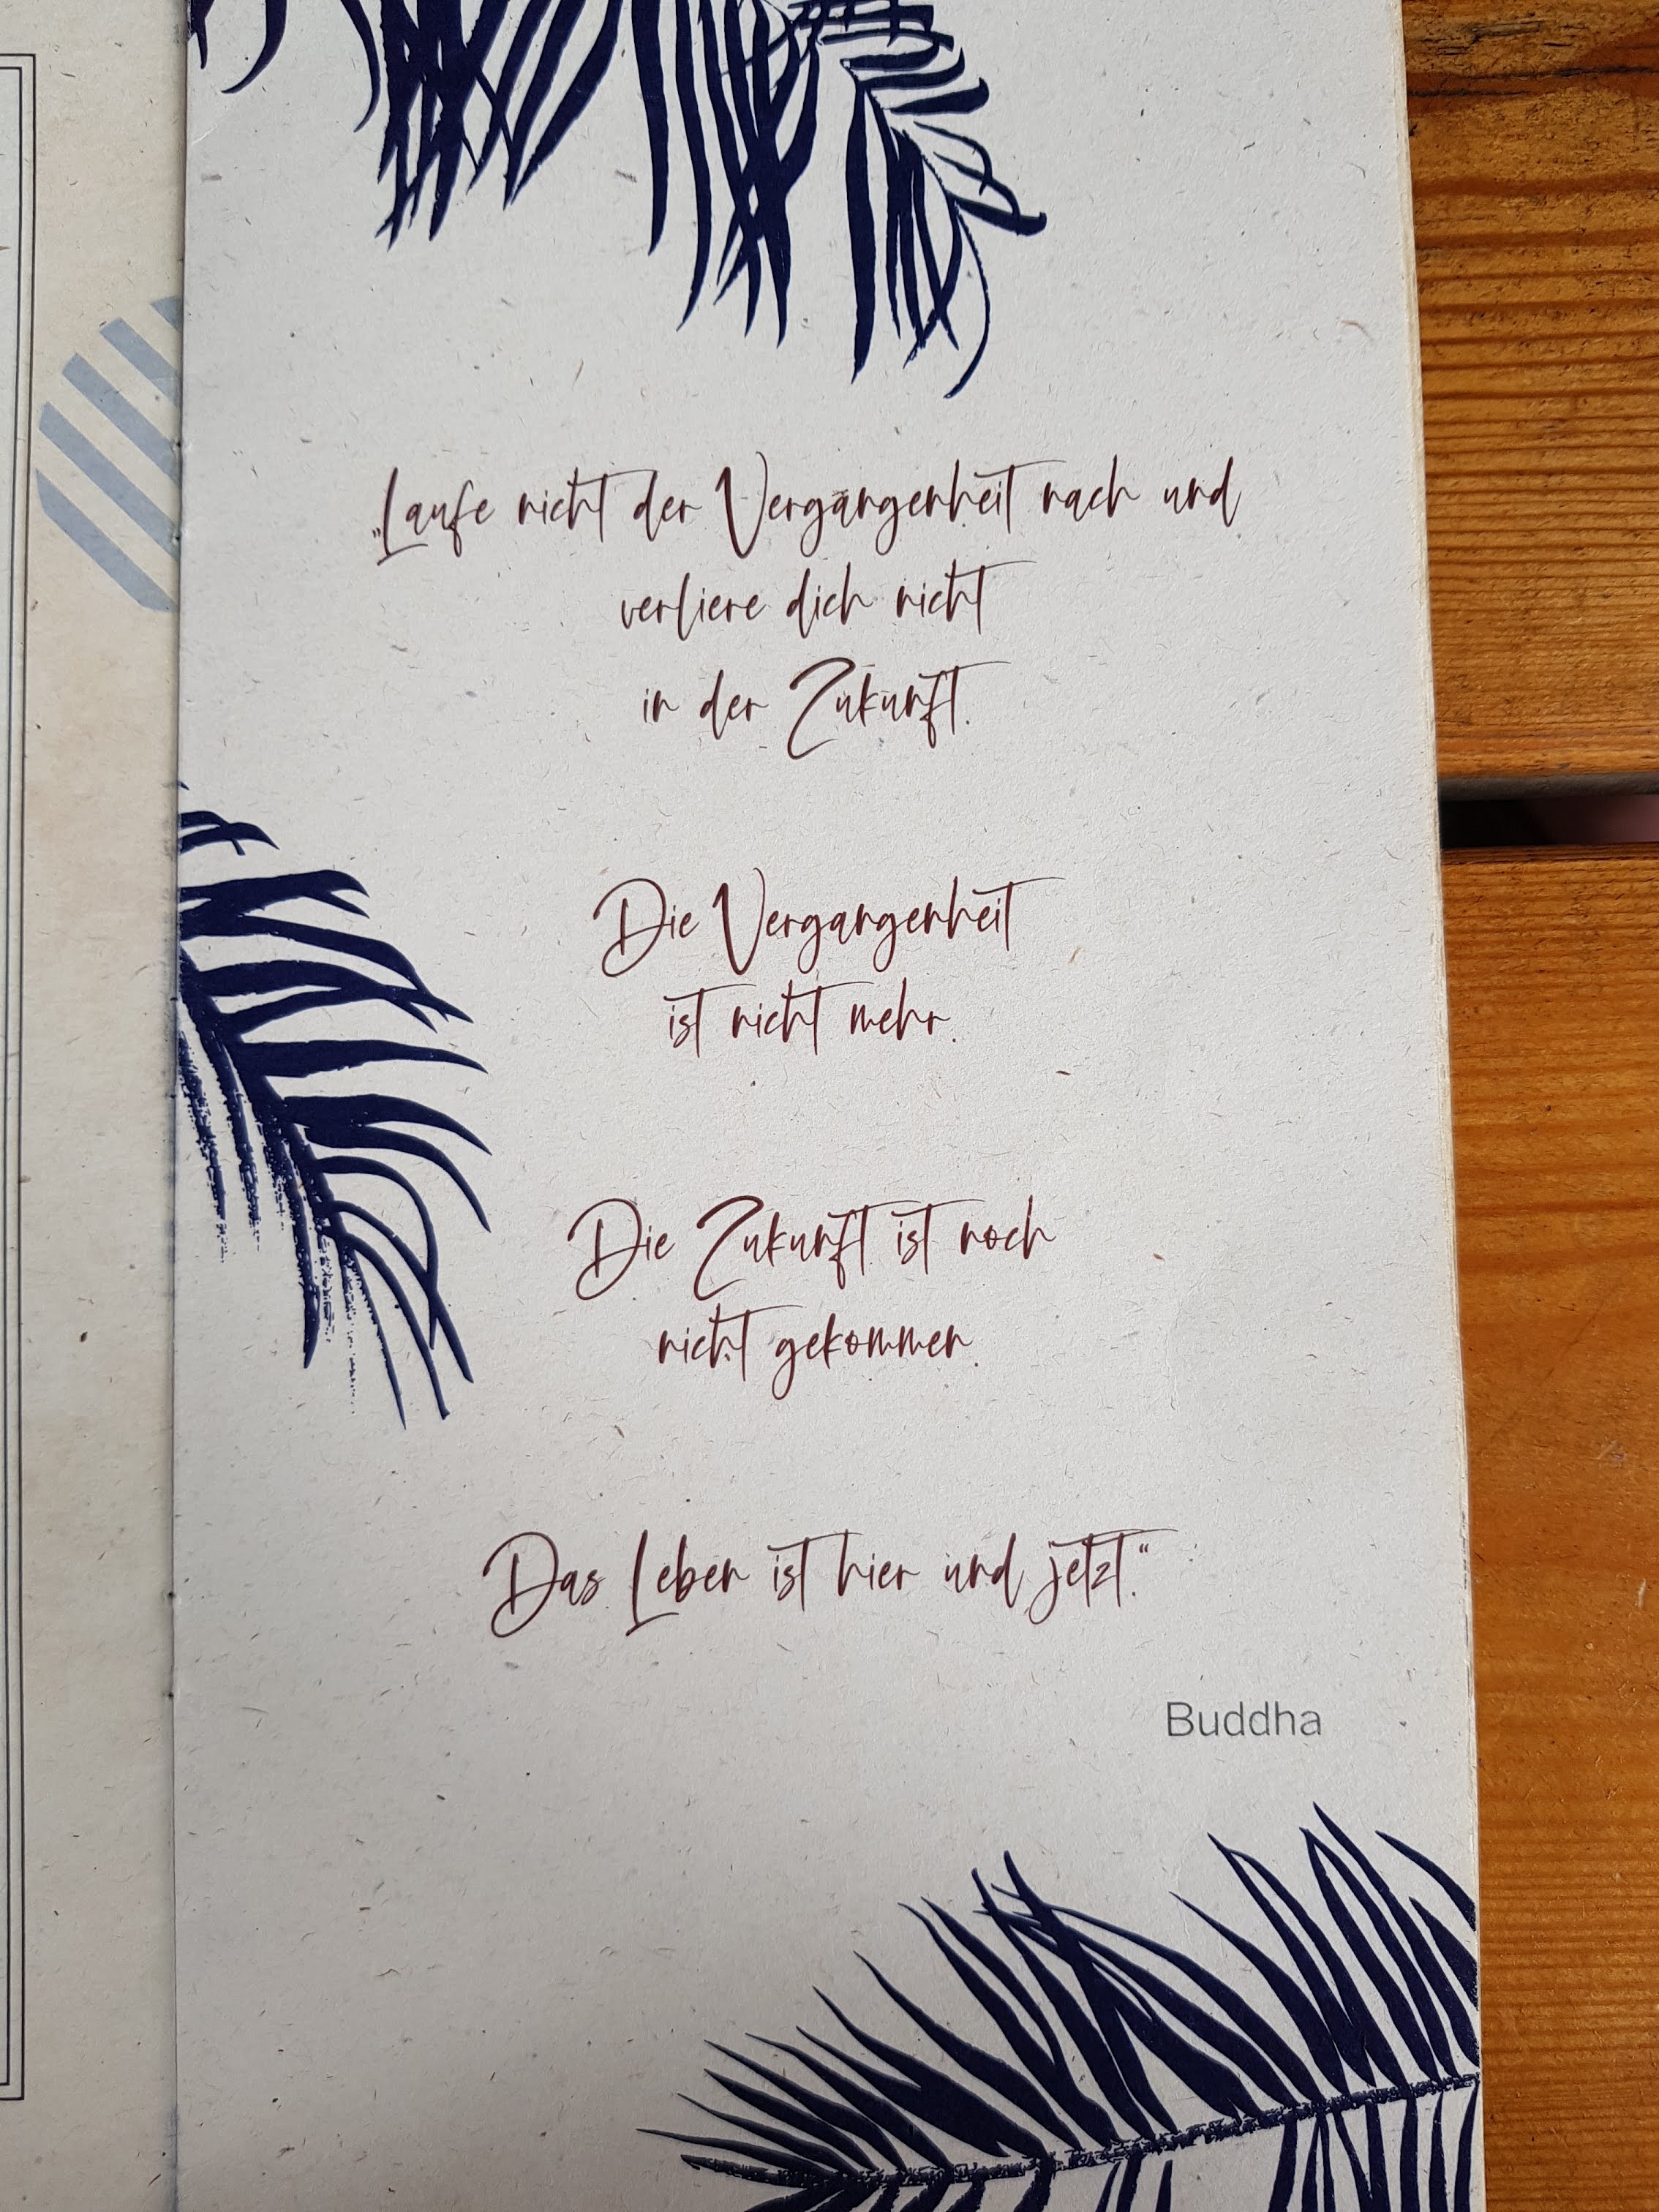 „Laufe nicht der Vergangenheit nach und
verliere dich nicht
in der Zukunft.
Die Vergangenheit
ist nicht mehr.
Die Zukunft ist noch
nicht gekommen.
Das Leben ist hier und jetzt.“
Buddha